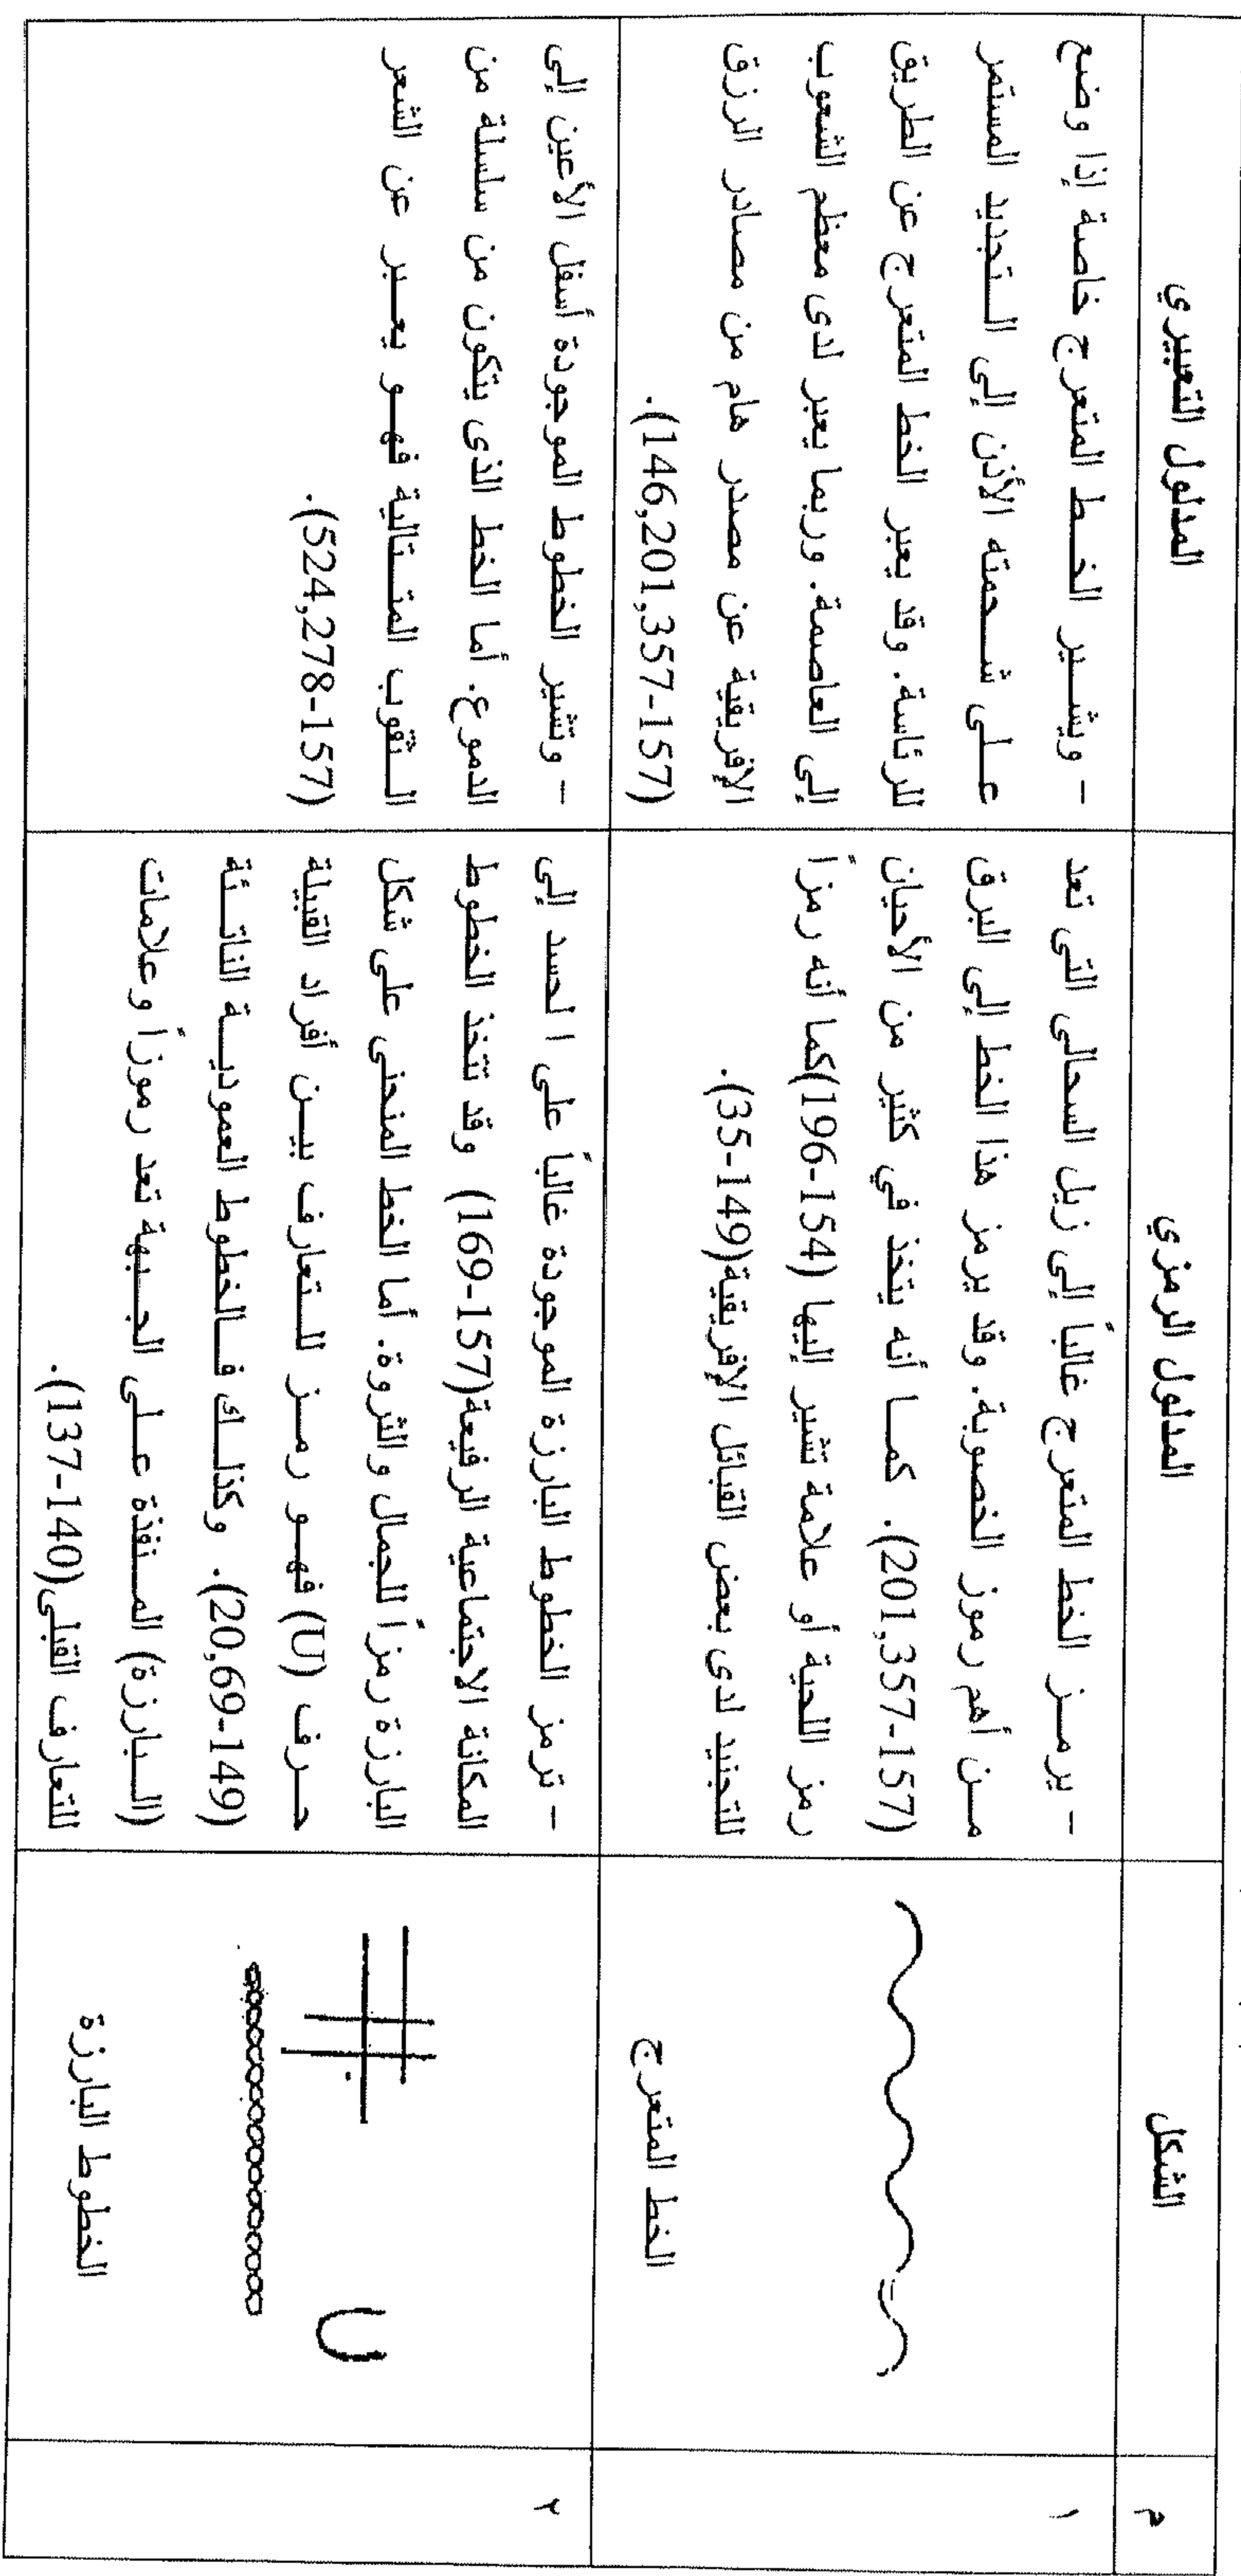 م
الشكل
المدلول الرمزي
المدلول التعبيري
١
الخط المتعرج
- يرمـــز الخط المتعرج غالباً إلى زيل السحالى التى تعد
مـــن أهم رموز الخصوبة. وقد يرمز هذا الخط إلى البرق
(201,357-157). كمـــا أنه يتخذ في كثير من الأحيان
رمز اللحية أو علامة تشير إليها (196-154)كما أنه رمزاً
للتجنيد لدى بعض القبائل الإفريقية(35-149).
- ويشـــير الخـــط المتعرج خاصة إذا وضع
عـــلى شـــحمته الأذن إلى الـــتجديد المستمر
للرئاسة. وقد يعبر الخط المتعرج عن الطريق
إلى العاصمة. وربما يعبر لدى معظم الشعوب
الإفريقية عن مصدر هام من مصادر الرزق
(146,201,357-157).
٢
U
الخطوط البارزة
- ترمز الخطوط البارزة الموجودة غالباً على الحسد إلى
المكانة الاجتماعية الرفيعة(169-157) وقد تتخذ الخطوط
البارزة رمزاً للجمال والثروة. أما الخط المنحنى على شكل
حـــرف (U) فهـــو رمـــز للـــتعارف بيـــن أفراد القبيلة
(20,69-149). وكذلـــك فـــالخطوط العموديـــة الناتـــئة
(الـــبارزة) المـــنفذة عـــلى الجـــبهة تعد رموزاً وعلامات
للتعارف القبلى(137-140).
- وتشير الخطوط الموجودة أسفل الأعين إلى
الدموع. أما الخط الذى يتكون من سلسلة من
الـــثقوب المتـــتالية فهـــو يعـــبر عن الشعر
(524,278-157).